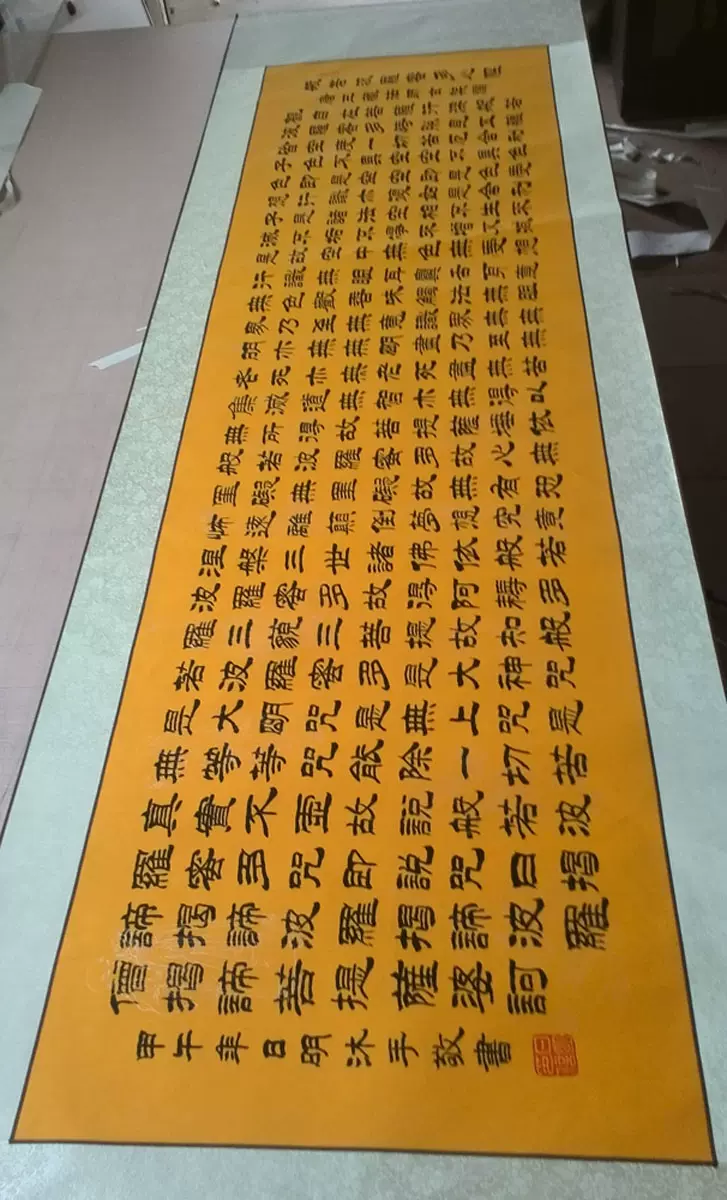 般若波羅蜜多心經
唐三藏法師玄奘譯
觀自在菩薩行深般若
波羅蜜多時照見五蘊
皆空度一切苦厄舍利
子色不異空空不異色
色即是空空即是色受
想行識亦復如是舍利
子是諸法空相不生不
滅不垢不淨不增不減
是故空中無色無受想
行識無眼耳鼻舌身意
無色聲香味觸法無眼
界乃至無意識界無無
明亦無無明盡乃至無
老死亦無老死盡無苦
集滅道無智亦無得以
無所得故菩提薩埵依
般若波羅蜜多故心無
罣礙無罣礙故無有恐
怖遠離顛倒夢想究竟
涅槃三世諸佛依般若
波羅蜜多故得阿耨多
羅三藐三菩提故知般
若波羅蜜多是大神咒
是大明咒是無上咒是
無等等咒能除一切苦
真實不虛故說般若波
羅蜜多咒即說咒曰揭
諦揭諦波羅揭諦波羅
僧揭諦菩提薩婆訶
甲午年日明沐手敬書